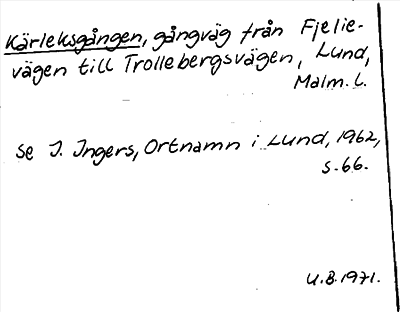 Kärleksgången, gångväg från Fjelie-
vägen till Trollebergsvägen, Lund,
Malm. l.
se I. Ingers, Ortnamn i Lund, 1962,
s. 66.
U.B. 1971.